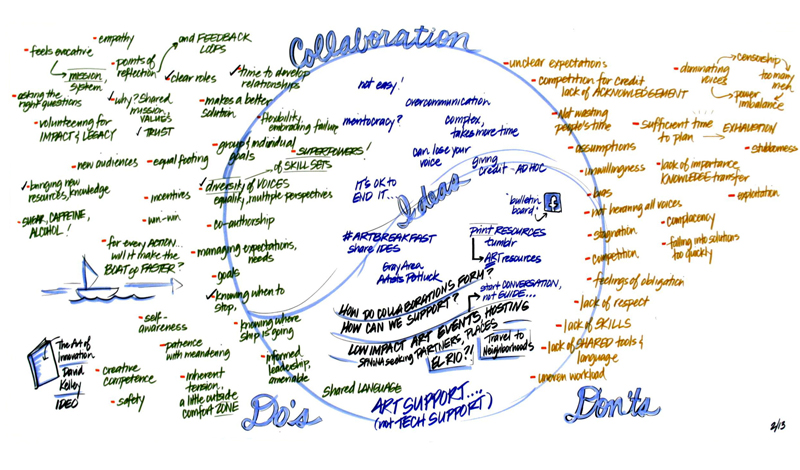 Collaboration
- empathy
- feels evocative
mission,
system
- points of
reflection
and FEEDBACK
LOOPS
✓clear roles
✓time to develop
relationships
- asking the
right questions
✓why? Shared
mission,
VALUES
✓ TRUST
- makes a better
solution
- volunteering for
IMPACT & LEGACY
- flexibility,
embracing failure
- group & individual
goals
- SUPERPOWERS!
of SKILL SETS
- new audiences
- equal footing
✓diversity of VOICES
equality, multiple perspectives
✓bringing new
resources, knowledge
- incentives
- SUGAR, CAFFEINE,
ALCOHOL!
- win-win
- co-authorship
- for every ACTION...
will it make the
BOAT go FASTER?
- managing expectations,
needs
- goals
✓knowing when to
stop,
- self-
awareness
- knowing where
ship is going
- patience
with meandering
- informed
leadership,
amenable
The Art of
Innovation
David
Kelley
IDEO
- creative
competence
- inherent
tension...
a little outside
comfort ZONE
- safety
Do's
Shared LANGUAGE
not easy!
overcommunication
mentocracy?
complex,
takes more time
can lose your
voice
giving
credit - AD HOC
IT'S OK to
END IT...
Ideas
"bulletin
board"
f
#ARTBREAKFAST
share IDES
Print RESOURCES
tumblr
ART resources
Gray Area
Artists Potluck
start CONVERSATION,
not GUIDE...
HOW DO COLLABORATIONS FORM?
HOW CAN WE SUPPORT?
LOW IMPACT ART EVENTS, HOSTING
seeking PARTNERS, PLACES
EL RIO?!
Travel to
Neighborhoods
ART SUPPORT....
(not TECH SUPPORT)
- unclear expectations
- competition for credit
lack of ACKNOWLEDGEMENT
- dominating
voices
censorship
too many
men
power
imbalance
- Not wasting
people's time
- sufficient time
to plan
EXHAUSTION
- stubbornness
- assumptions
- unwillingness
- lack of importance,
KNOWLEDGE transfer
- bias
- exploitation
- not hearing all voices
- complacency
- stagnation
- falling into solutions
too quickly
- competition
- feelings of obligation
- lack of respect
- lack of SKILLS
- lack of SHARED tools &
language
- uneven workload
Don'ts
2/13